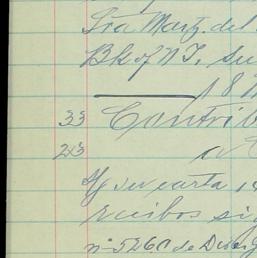 Sra Marq. del
Bk of N.Y., su
18
33 Contrib
23 a
y su carta
recibos si
nº 5260 de